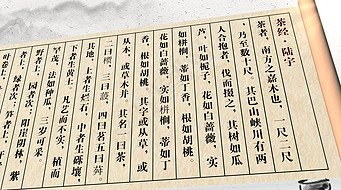 茶经·陆宇
茶者，南方之嘉木也，一尺二尺
乃至数十尺，其巴山峡川有两
人合抱者，伐而掇之，其树如瓜
芦，叶如栀子，花如白蔷薇，实
如栟榈，蒂如丁香，根如胡桃。
花如白蔷薇，实如栟榈，蒂如丁
香，根如胡桃，其字或从草，或
从木，或草木并。其名：一曰茶，
二曰槚，三曰蔎，四曰茗五曰荈。
其地，上者生烂石，中者生砾壤，
下者生黄土，凡艺而不实，植而
罕茂，法如种瓜，三岁可采。
野者上，园者次；阳崖阴林，紫
者上，绿者次；笋者上，牙者
叶卷上，